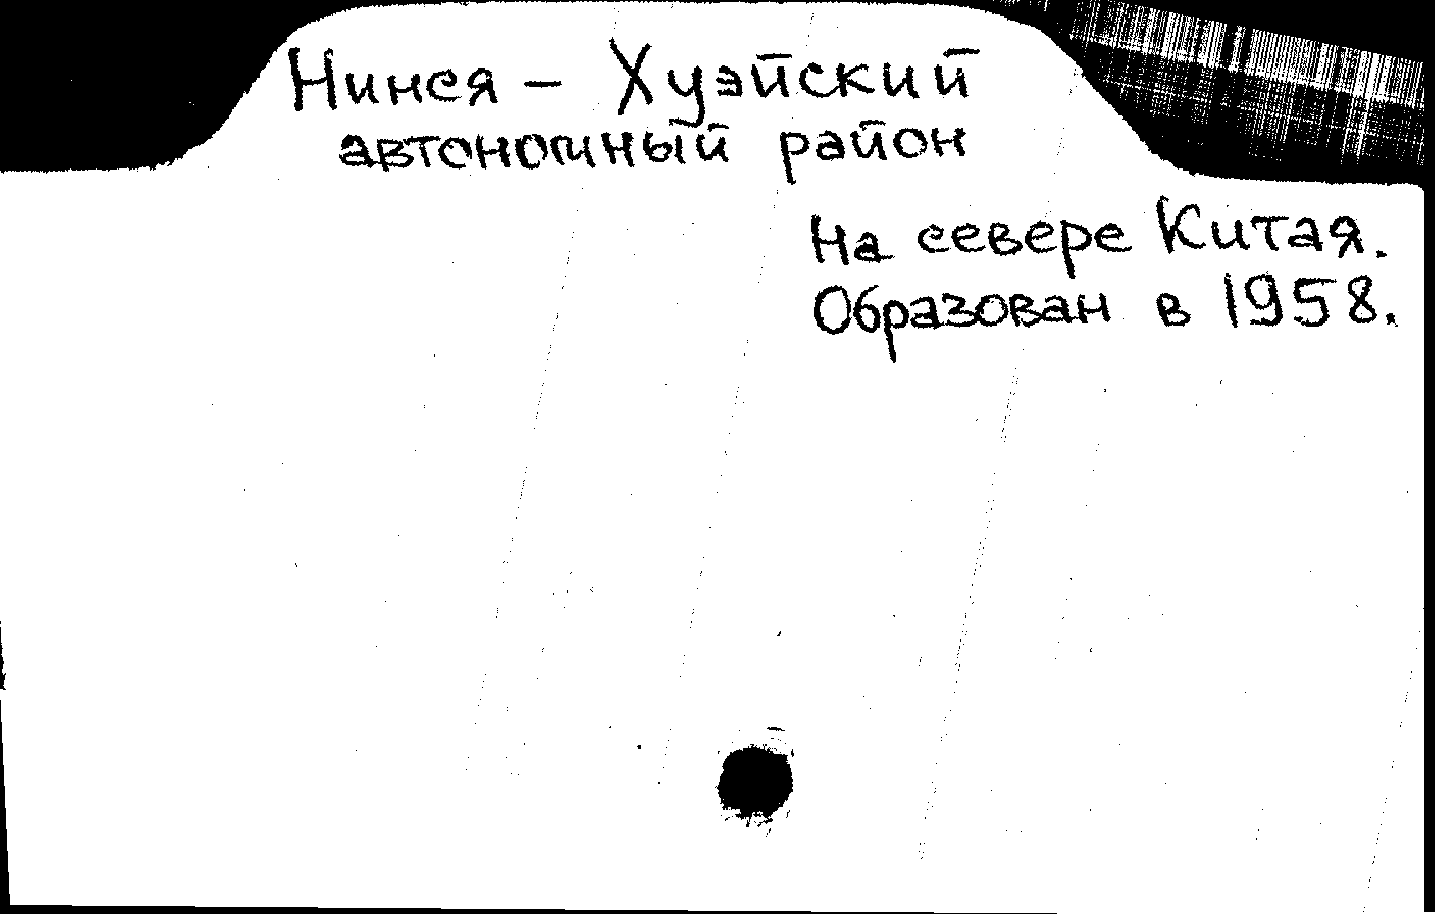 Нинся – Хуэйский
автономный район
На севере Китая.
Образован в 1958.